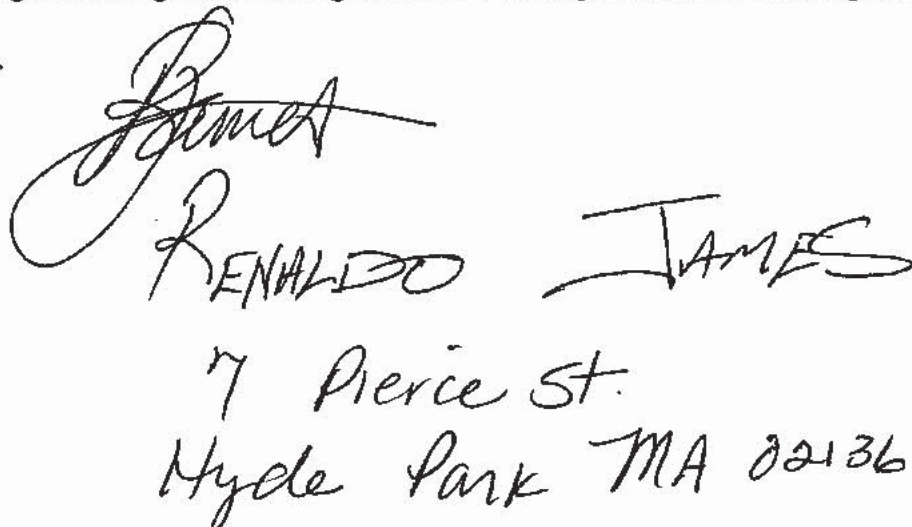 RENALDO JAMES
7 Pierce St.
Hyde Park MA 02136